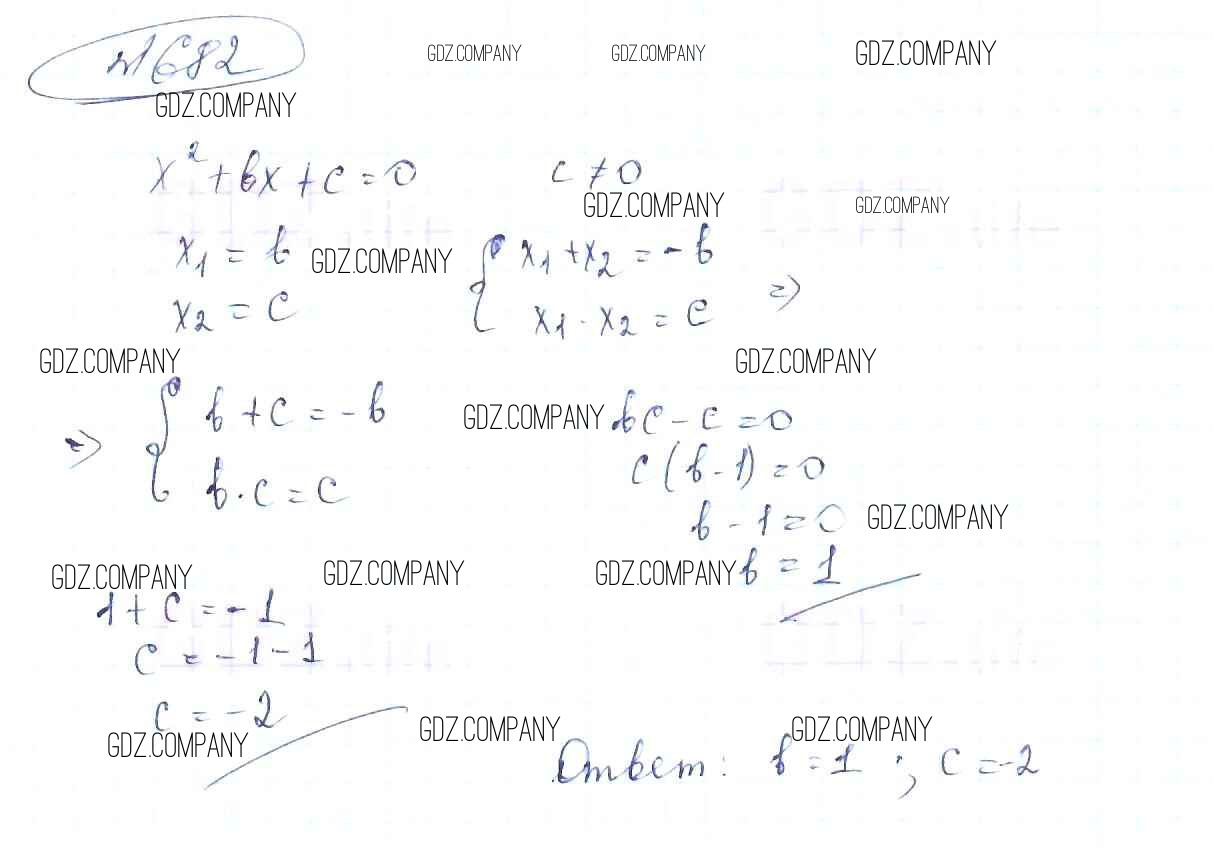 №682
GDZ.COMPANY GDZ.COMPANY GDZ.COMPANY
GDZ.COMPANY
x² + bx + c = 0 c ≠ 0
GDZ.COMPANY GDZ.COMPANY
x₁ = b GDZ.COMPANY { x₁ + x₂ = -b
x₂ = c x₁ · x₂ = c =>
GDZ.COMPANY GDZ.COMPANY
=> { b + c = -b GDZ.COMPANY bc - c = 0
b · c = c c(b - 1) = 0
b - 1 = 0 GDZ.COMPANY
GDZ.COMPANY GDZ.COMPANY GDZ.COMPANY b = 1
1 + c = -1
c = -1 - 1
c = -2
GDZ.COMPANY GDZ.COMPANY GDZ.COMPANY
Ответ: b = 1 ; c = -2